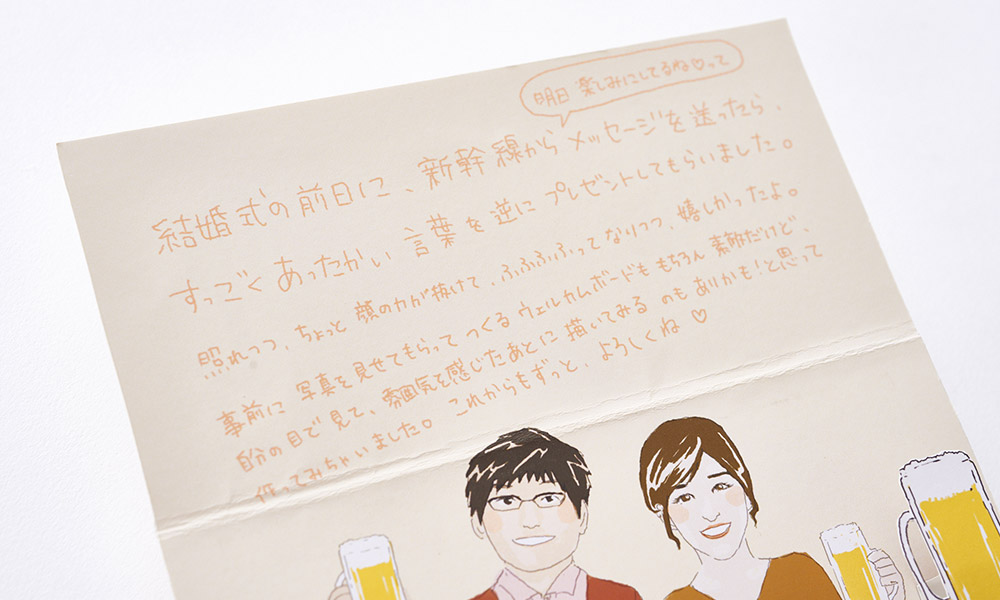 明日 楽しみにしてるね♡って
結婚式の前日に、新幹線からメッセージを送ったら、
すっごくあったかい言葉を逆にプレゼントしてもらいました。
照れつつ、ちょっと顔の力が抜けて、ふふふふってなりつつ、嬉しかったよ。
事前に写真を見せてもらってつくるウェルカムボードももちろん素敵だけど、
自分の目で見て、雰囲気を感じたあとに描いてみるのもありかも!と思って
作ってみちゃいました。これからもずっと、よろしくね♡